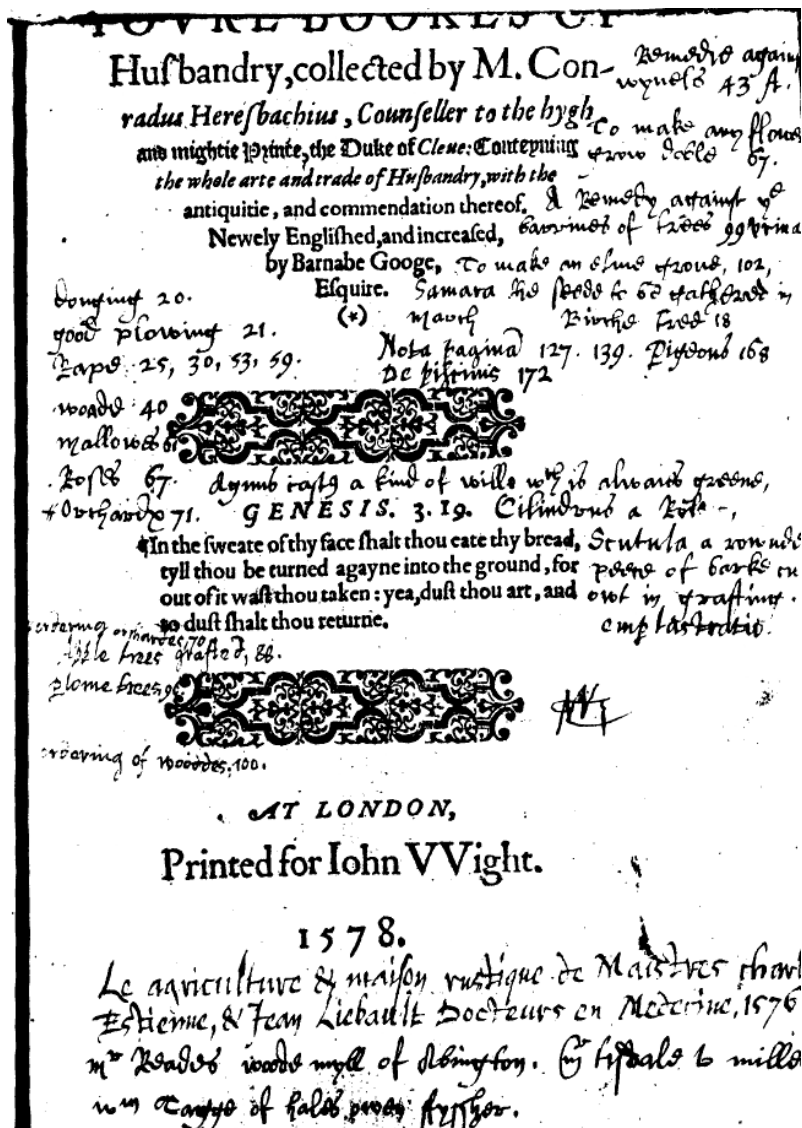 FOVRE BOOKES OF
Huſbandry, collected by M. Con-
radus Hereſbachius, Counſeller to the hygh
and mightie Prince, the Duke of Cleue: Conteyning
the whole arte and trade of Huſbandry, with the
antiquitie, and commendation thereof.
Newely Engliſhed, and increaſed,
by Barnabe Googe,
Eſquire.
(*)
Remedie again
wyvels 43 A.
To make any flower
grow doble 67.
A Remedy against yᵉ
barrines of trees 99
To make an elme grove, 102,
Samara the seede to be gathered in
march Birche tree 18
Nota pagina 127. 139. Pigeons 168
De 172
donging 20.
good plowing 21.
Rape 25, 30, 53, 59.
woade 40
mallowes
Roſes 67.
a kind of willo wᶜʰ is alwais greene,
Orchard 71.
GENESIS. 3.19.
Cilindrus a
¶In the ſweate of thy face ſhalt thou eate thy bread,
tyll thou be turned agayne into the ground, for
out of it waſt thou taken: yea, duſt thou art, and
to duſt ſhalt thou returne.
Scutula a rownde
peece of barke cu
owt in grafting.
emplastratio.
ordering orchardes, 70
trees grafted, 88.
plome trees, 9
ordering of wooddes, 100.
AT LONDON,
Printed for Iohn VVight.
1578.
Le agriculture & maiſon rustique de Maistres charl
Estienne, & Jean Liebault Docteurs en Medecine, 1576
mʳ Reades woade myll of Abington.
of hales